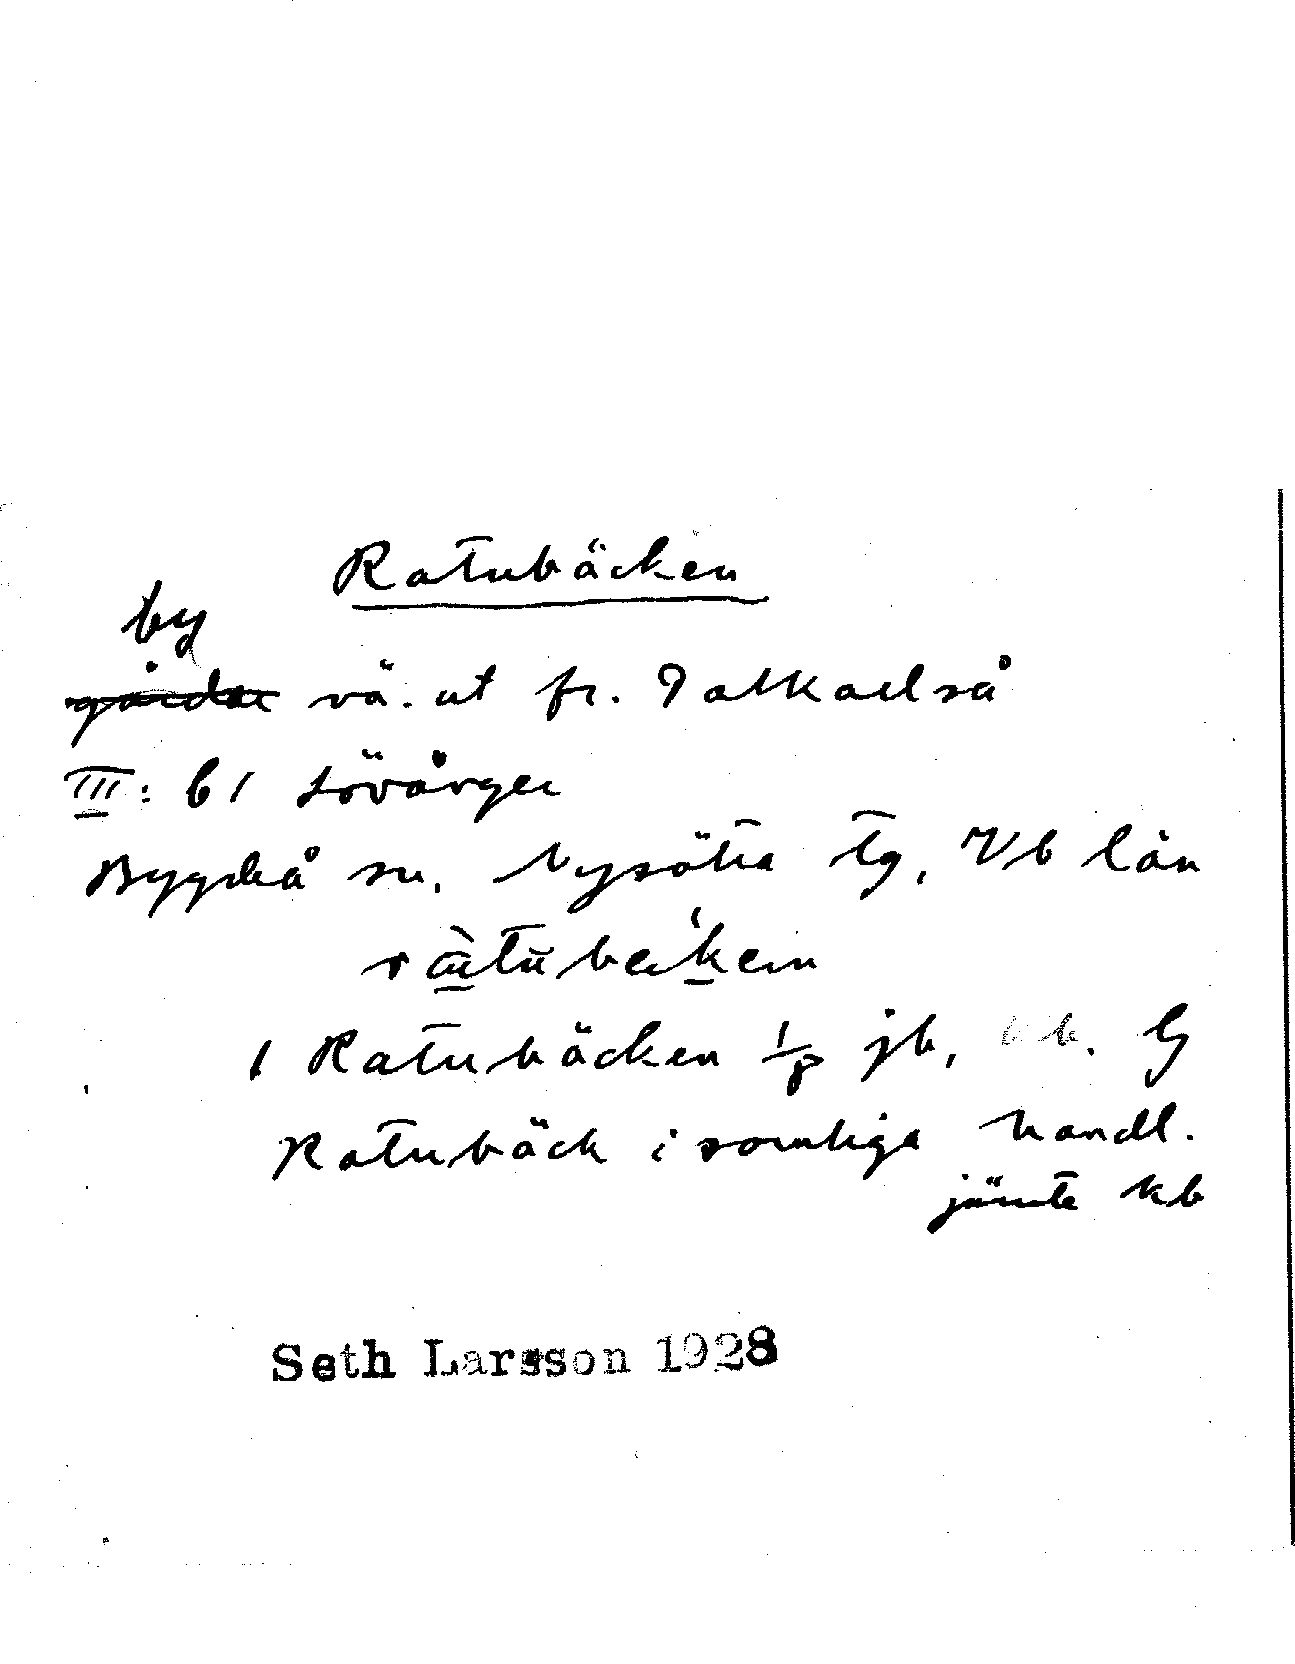 Ratubäcken
by
gårdar vä. ut fr. Talkaelså
III: 61 Lövånger
Bygdeå sn, Nysätra tg, Vb län
1 Ratubäcken 1/8 jb, kb. Lg
Ratubäck i somliga handl.
jämte kb
Seth Larsson 1928